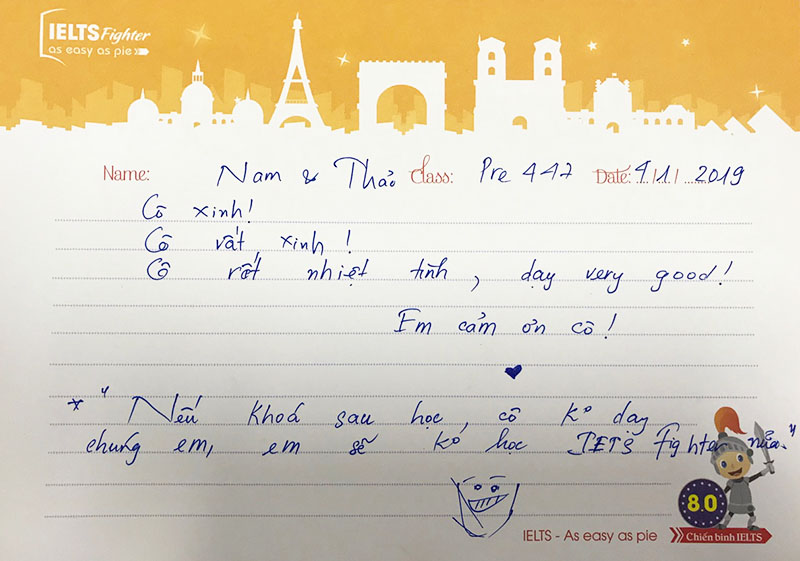 IELTS Fighter
as easy as pie
Name: Nam & Thảo Class: Pre 447 Date: 9/1/2019
Cô xinh!
Cô rất xinh!
Cô rất nhiệt tình, dạy very good!
Em cảm ơn cô!
* "Nếu khoá sau học, cô ko dạy
chúng em, em sẽ ko học IETS Fighter nữa."
8.0
IELTS - As easy as pie Chiến binh IELTS